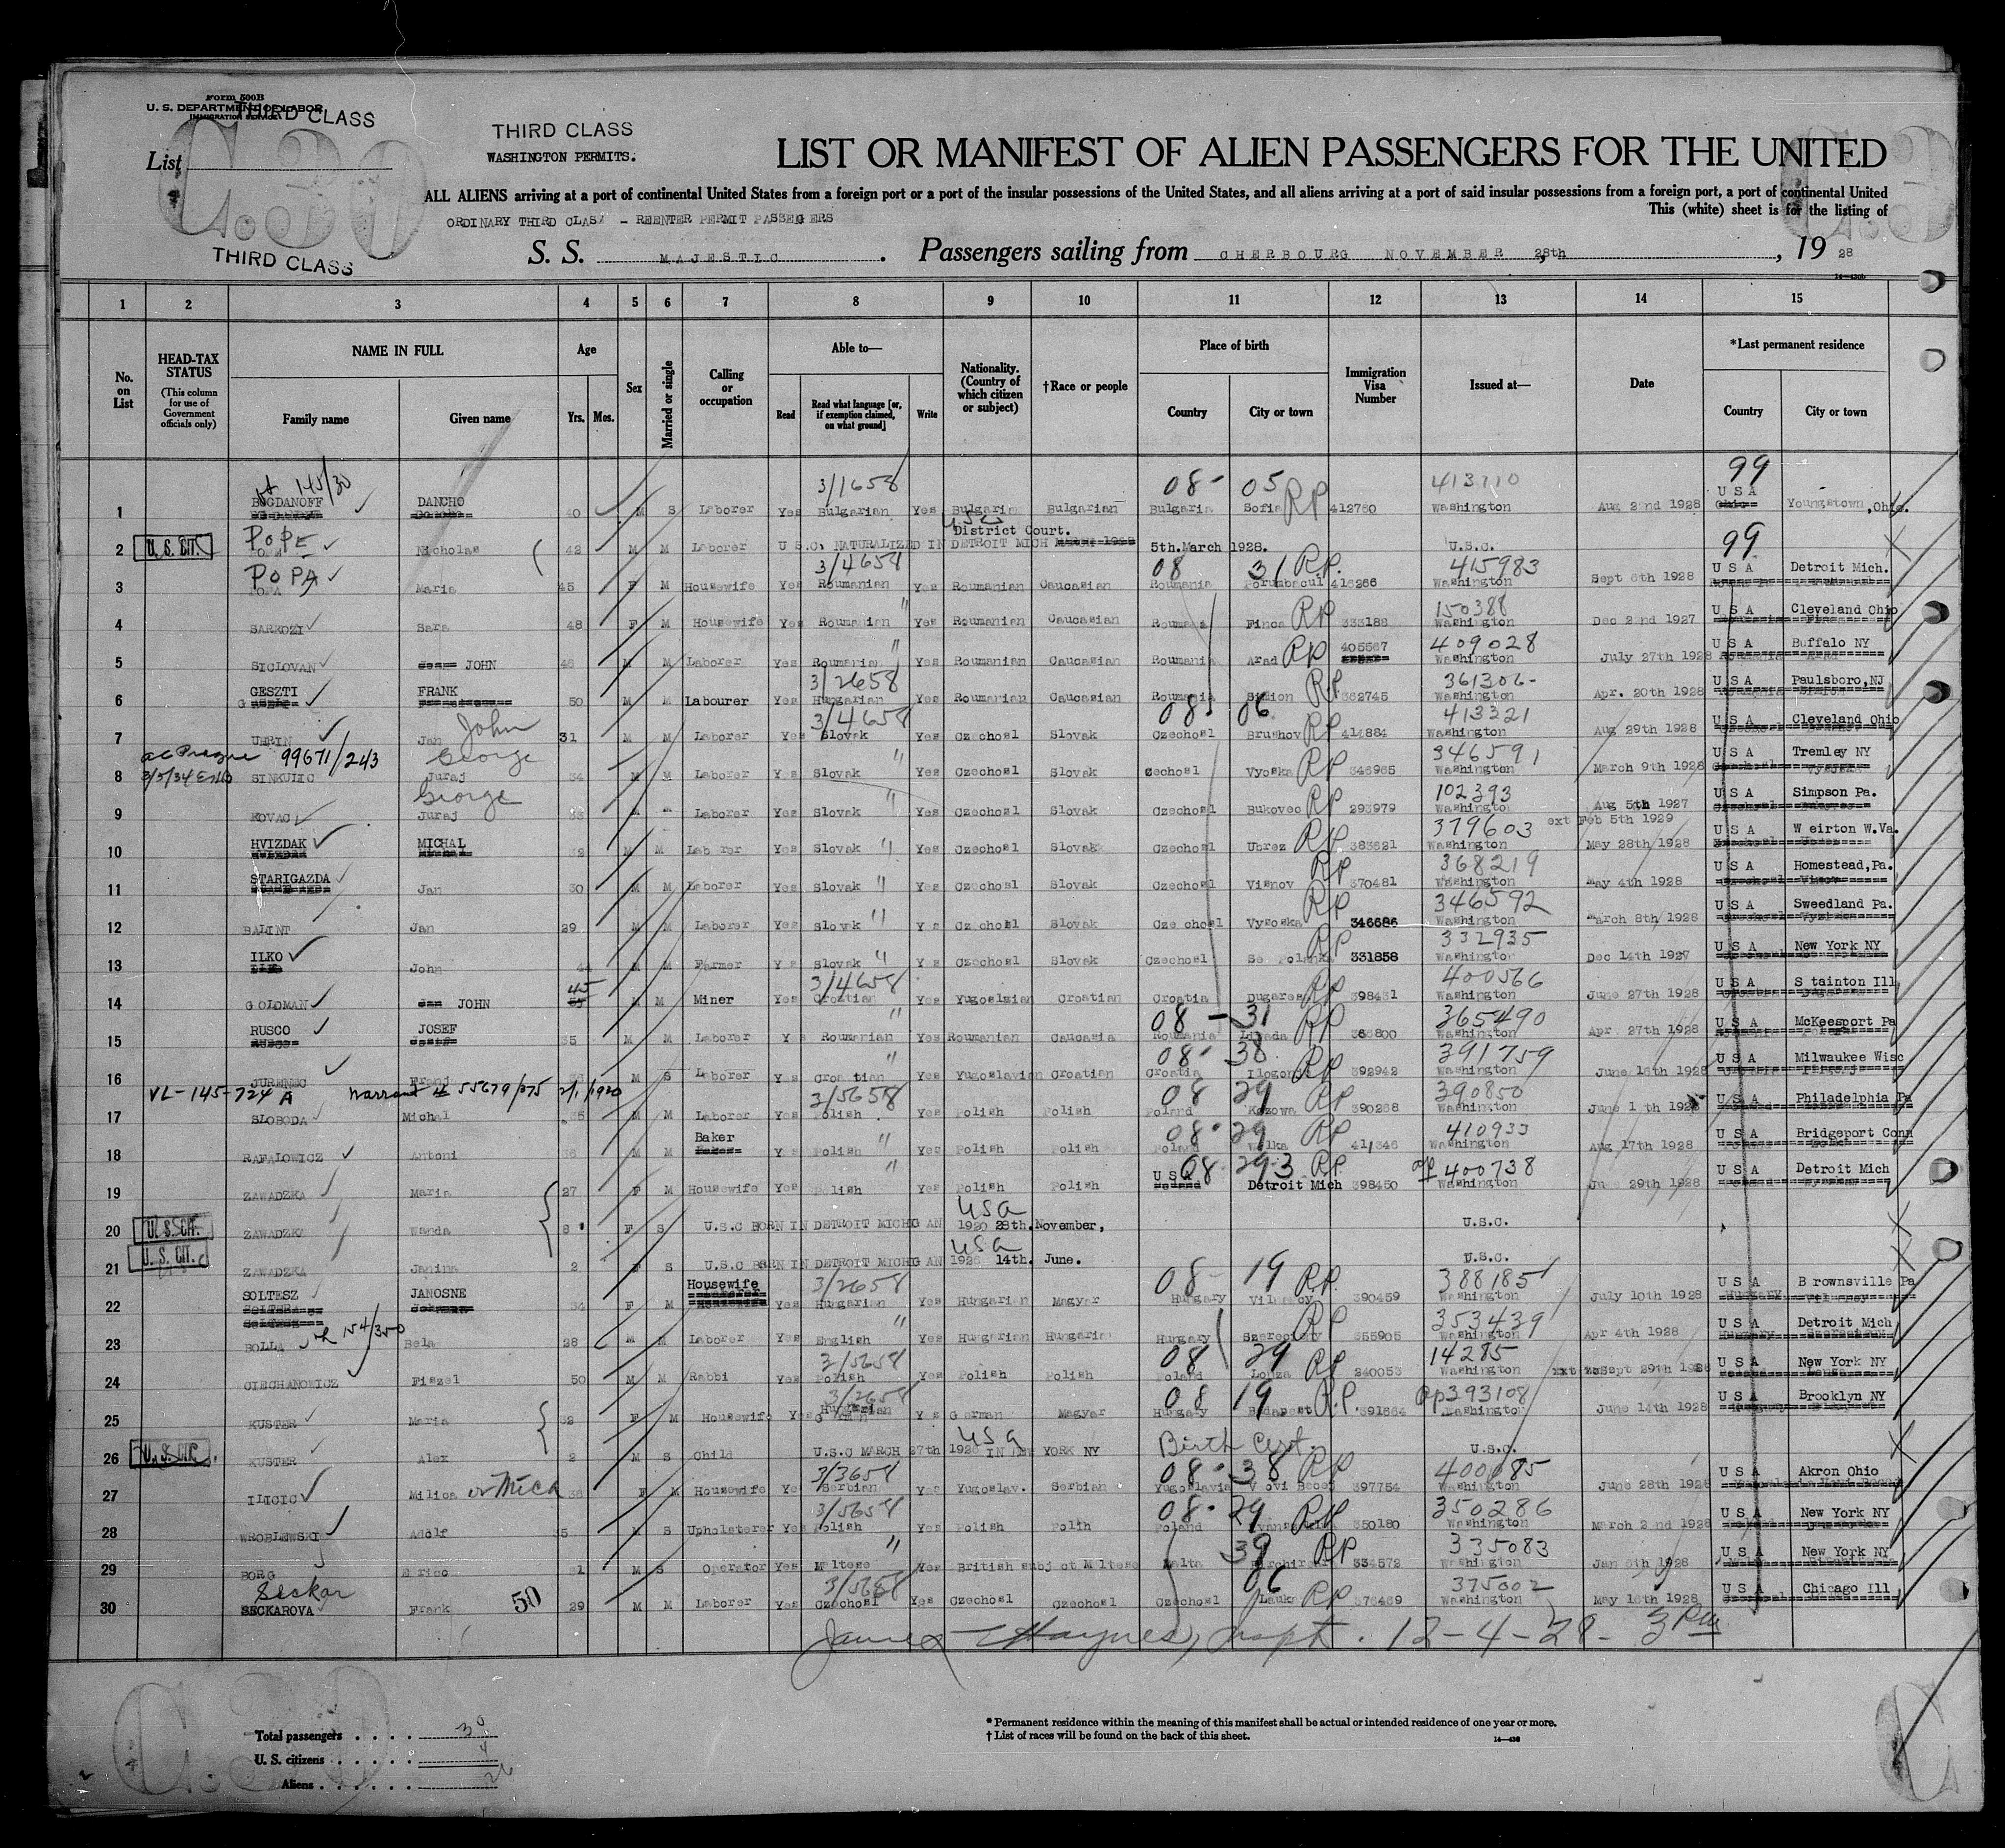 Form 500B
U. S. DEPARTMENT OF LABOR
IMMIGRATION SERVICE
THIRD CLASS
THIRD CLASS
WASHINGTON PERMITS.
List
LIST OR MANIFEST OF ALIEN PASSENGERS FOR THE UNITED
ALL ALIENS arriving at a port of continental United States from a foreign port or a port of the insular possessions of the United States, and all aliens arriving at a port of said insular possessions from a foreign port, a port of continental United
This (white) sheet is for the listing of
ORDINARY THIRD CLASS - REENTER PERMIT PASSEGERS
THIRD CLASS
S. S. MAJESTIC . Passengers sailing from CHERBOURG NOVEMBER 28th , 19 28
1 2 3 4 5 6 7 8 9 10 11 12 13 14 15
No. on List
HEAD-TAX STATUS (This column for use of Government officials only)
NAME IN FULL
Family name Given name
Age Yrs. Mos.
Sex
Married or single
Calling or occupation
Able to—
Read Read what language [or, if exemption claimed, on what ground] Write
Nationality. (Country of which citizen or subject)
†Race or people
Place of birth
Country City or town
Immigration Visa Number
Issued at—
Date
*Last permanent residence
Country City or town
145/30 3/1658 08- 05 RP 413710 99
1 BOGDANOFF DANCHO 40 M S Laborer Yes Bulgarian Yes Bulgarian Bulgarian Bulgaria Sofia 412760 Washington Aug 22nd 1928 U S A Youngstown, Ohio.
2 U. S. CIT. POPE Nicholas 42 M M Laborer U S C. NATURALIZED IN DETROIT MICH District Court. 5th. March 1928. U.S.C. 99
3/4658 08 31 RP. 415983
3 POPA Maria 45 F M Housewife Yes Roumanian Yes Roumanian Caucasian Roumania Porumbacul 416266 Washington Sept 6th 1928 U S A Detroit Mich.
4 SARKOZI Sara 48 F M Housewife Yes Roumanian " Yes Roumanian Caucasian Finca RP 333188 150388 Washington Dec 22nd 1927 U S A Cleveland Ohio
5 SICLOVAN JOHN 46 M M Laborer Yes Roumanian " Yes Roumanian Caucasian Roumania Arad RP 405567 409028 Washington July 27th 1928 U S A Buffalo NY
3/2658 361306-
6 GESZTI FRANK 50 M M Labourer Yes Hungarian Yes Roumanian Caucasian Roumania RP 362745 Washington Apr. 20th 1928 U S A Paulsboro, NJ
John 3/4658 08- 06 413321
7 UHRIN Jan 31 M M Laborer Yes Slovak Yes Czechosl Slovak Czechosl Brushov RP 414884 Washington Aug 29th 1928 U S A Cleveland Ohio
99671/243 George 346591
8 SINKULIC Juraj 34 M M Laborer Yes Slovak " Yes Czechosl Slovak Czechosl Vysoka RP 346965 Washington March 9th 1928 U S A Tremley NY
George 102393
9 KOVAC Juraj 33 M M Laborer Yes Slovak " Yes Czechosl Slovak Czechosl Bukovec RP 293979 Washington Aug 5th 1927 U S A Simpson Pa.
379603 ext Feb 5th 1929
10 HVIZDAK MICHAL 32 M M Laborer Yes Slovak " Yes Czechosl Slovak Czechosl Ubrez RP 383621 Washington May 28th 1928 U S A Weirton W.Va.
368219
11 STARIGAZDA Jan 30 M M Laborer Yes Slovak " Yes Czechosl Slovak Czechosl Visnov RP 370481 Washington May 4th 1928 U S A Homestead, Pa.
346592
12 BALINT Jan 29 M M Laborer Yes Slovak " Yes Czechosl Slovak Czechosl Vysoska RP 346686 Washington March 8th 1928 U S A Sweedland Pa.
332935
13 ILKO John 44 M M Farmer Yes Slovak " Yes Czechosl Slovak Czechosl RP 331858 Washington Dec 14th 1927 U S A New York NY
45 3/4658 400566
14 GOLDMAN JOHN M M Miner Yes Croatian Yes Yugoslavian Croatian Croatia Dugares RP 398431 Washington June 27th 1928 U S A Stainton Ill
08-31 365490
15 RUSCO JOSEF 35 M M Laborer Yes Roumanian " Yes Roumanian Caucasian Roumania RP Washington Apr. 27th 1928 U S A McKeesport Pa
08- 38 391759
16 JURENEC M S Laborer Yes Croatian " Yes Yugoslavian Croatian Croatia RP 392942 Washington June 16th 1928 U S A Milwaukee Wisc
VL-145-724 A Warrant # 55679/375 3/5658 08 29 390850
17 SLOBODA Michal 35 M M Laborer Yes Polish Yes Polish Polish Poland Kozowa RP 390268 Washington 1928 U S A Philadelphia Pa
08- 29 410933
18 RAFALOWICZ Antoni 36 M M Baker Yes Polish " Yes Polish Polish Poland RP Washington Aug 17th 1928 U S A Bridgeport Conn
08- 293 RP. 400738
19 ZAWADZKA Maria 27 F M Housewife Yes Polish " Yes Polish Polish U S A Detroit Mich 398450 Washington June 29th 1928 U S A Detroit Mich
20 U. S. CIT. ZAWADZKA Wanda 8 F S U.S.C BORN IN DETROIT MICHIGAN USA 1920 28th. November, U.S.C.
21 U. S. CIT. ZAWADZKA Janina 2 F S U.S.C BORN IN DETROIT MICHIGAN USA 1926 14th. June. U.S.C.
3/2658 08- 19 R.P. 388185
22 SOLTESZ JANOSNE 34 F M Housewife Yes Hungarian Yes Hungarian Magyar Hungary 390459 Washington July 10th 1928 U S A Brownsville Pa
154/350 353439
23 BOLLA Bela 28 M M Laborer Yes English " Yes Hungarian Hungarian Hungary RP 355905 Washington Apr 4th 1928 U S A Detroit Mich
3/5658 08 29 14285
24 CIECHANOWICZ Fiszel 50 M M Rabbi Yes Polish Yes Polish Polish Poland Lomza RP 240053 Washington ext to Sept 29th 1928 U S A New York NY
3/2658 08 19 R.P. 393108
25 KUSTER Maria 32 F M Housewife Yes Hungarian Yes German Magyar Hungary Budapest 391664 Washington June 14th 1928 U S A Brooklyn NY
26 U. S. CIT. KUSTER Alex 2 M S Child U.S.C MARCH 27th 1926 IN NEW YORK NY USA Birth Cert. U.S.C.
3/3658 08- 38 RP 400085
27 ILICIC Milica or Mica 38 F M Housewife Yes Serbian Yes Yugoslav. Serbian Yugoslavia 397754 Washington June 28th 1928 U S A Akron Ohio
3/5658 08- 29 RP 350286
28 WROBLEWSKI Adolf M S Upholsterer Yes Polish Yes Polish Polish Poland 350180 Washington March 22nd 1928 U S A New York NY
39 335083
29 BORG Erico M S Operator Yes Maltese " Yes British subject Maltese Malta Birchircar RP 334572 Washington Jan 6th 1928 U S A New York NY
Seckar 3/5658 06 375002
30 SECKAROVA Frank 50 29 M M Laborer Yes Czechosl Yes Czechosl Czechosl Czechosl RP 376469 Washington May 16th 1928 U S A Chicago Ill
James Haynes, Inspt. 12-4-28- 3 PM
Total passengers . . . . 30
U. S. citizens . . . . . 4
Aliens . . . . . . 26
* Permanent residence within the meaning of this manifest shall be actual or intended residence of one year or more.
† List of races will be found on the back of this sheet.